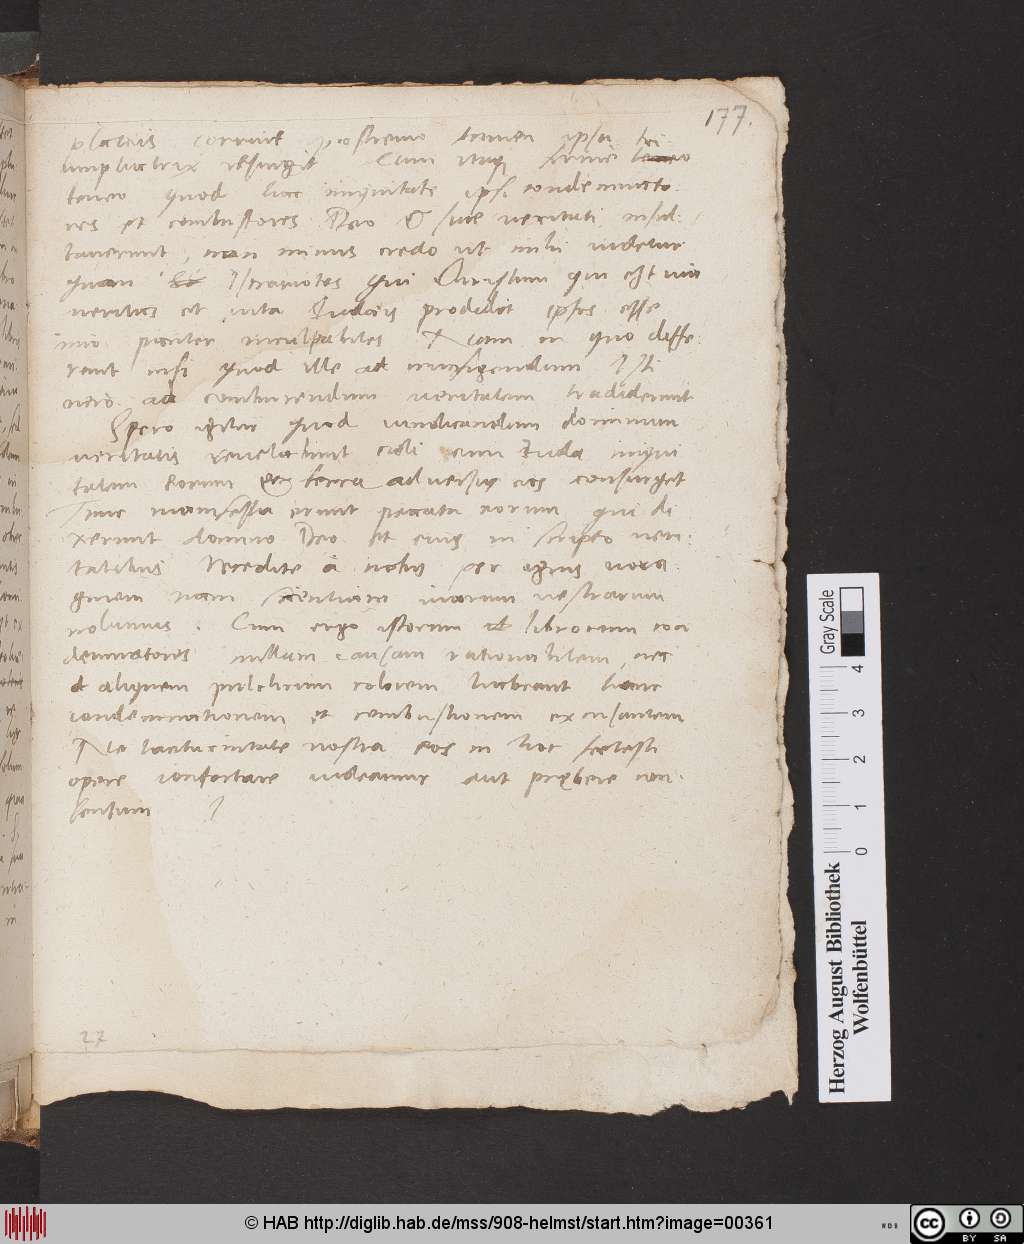 177.
plateis corruit postremo tamen ipsa tri
umphatrix resurgit Cum itaq firmiter
teneo quod hac iniquitate ipsi condemnato
res et combustores Deo & suae veritati insul:
taverunt, non minus credo ut mihi videtur
quam Iscariotes qui Christum qui est via
veritas et vita Iudaeis prodidit ipsos esse
pariter inculpabiles Nam in quo diffe:
runt nisi quod ille ad crucifigendum Isti
vero ad comburendum veritatem tradiderunt
Spero igitur quod vindicandum dominum
veritatis revelabunt celi cum Iuda iniqui
tatem eorum & terra adversus eos consurget
Tunc manifesta erunt peccata eorum qui di
xerunt domino Deo Et eius in scripto veri:
tatibus Recedite à nobis per ignis vora
ginem nam scientiam viarum vestrarum
nolumus. Cum ergo istorum librorum con
demnatores nullam causam rationabilem, nec
aliquem pulchrum colorem habeant hanc
condemnationem et combustionem excusantem
Ne taciturnitate nostra eos in hoc scelesti
opere confortare videamur aut praebere con:
sensum
27
Herzog August Bibliothek
Wolfenbüttel
Gray Scale
0 1 2 3 4
© HAB http://diglib.hab.de/mss/908-helmst/start.htm?image=00361
WDB
cc BY SA